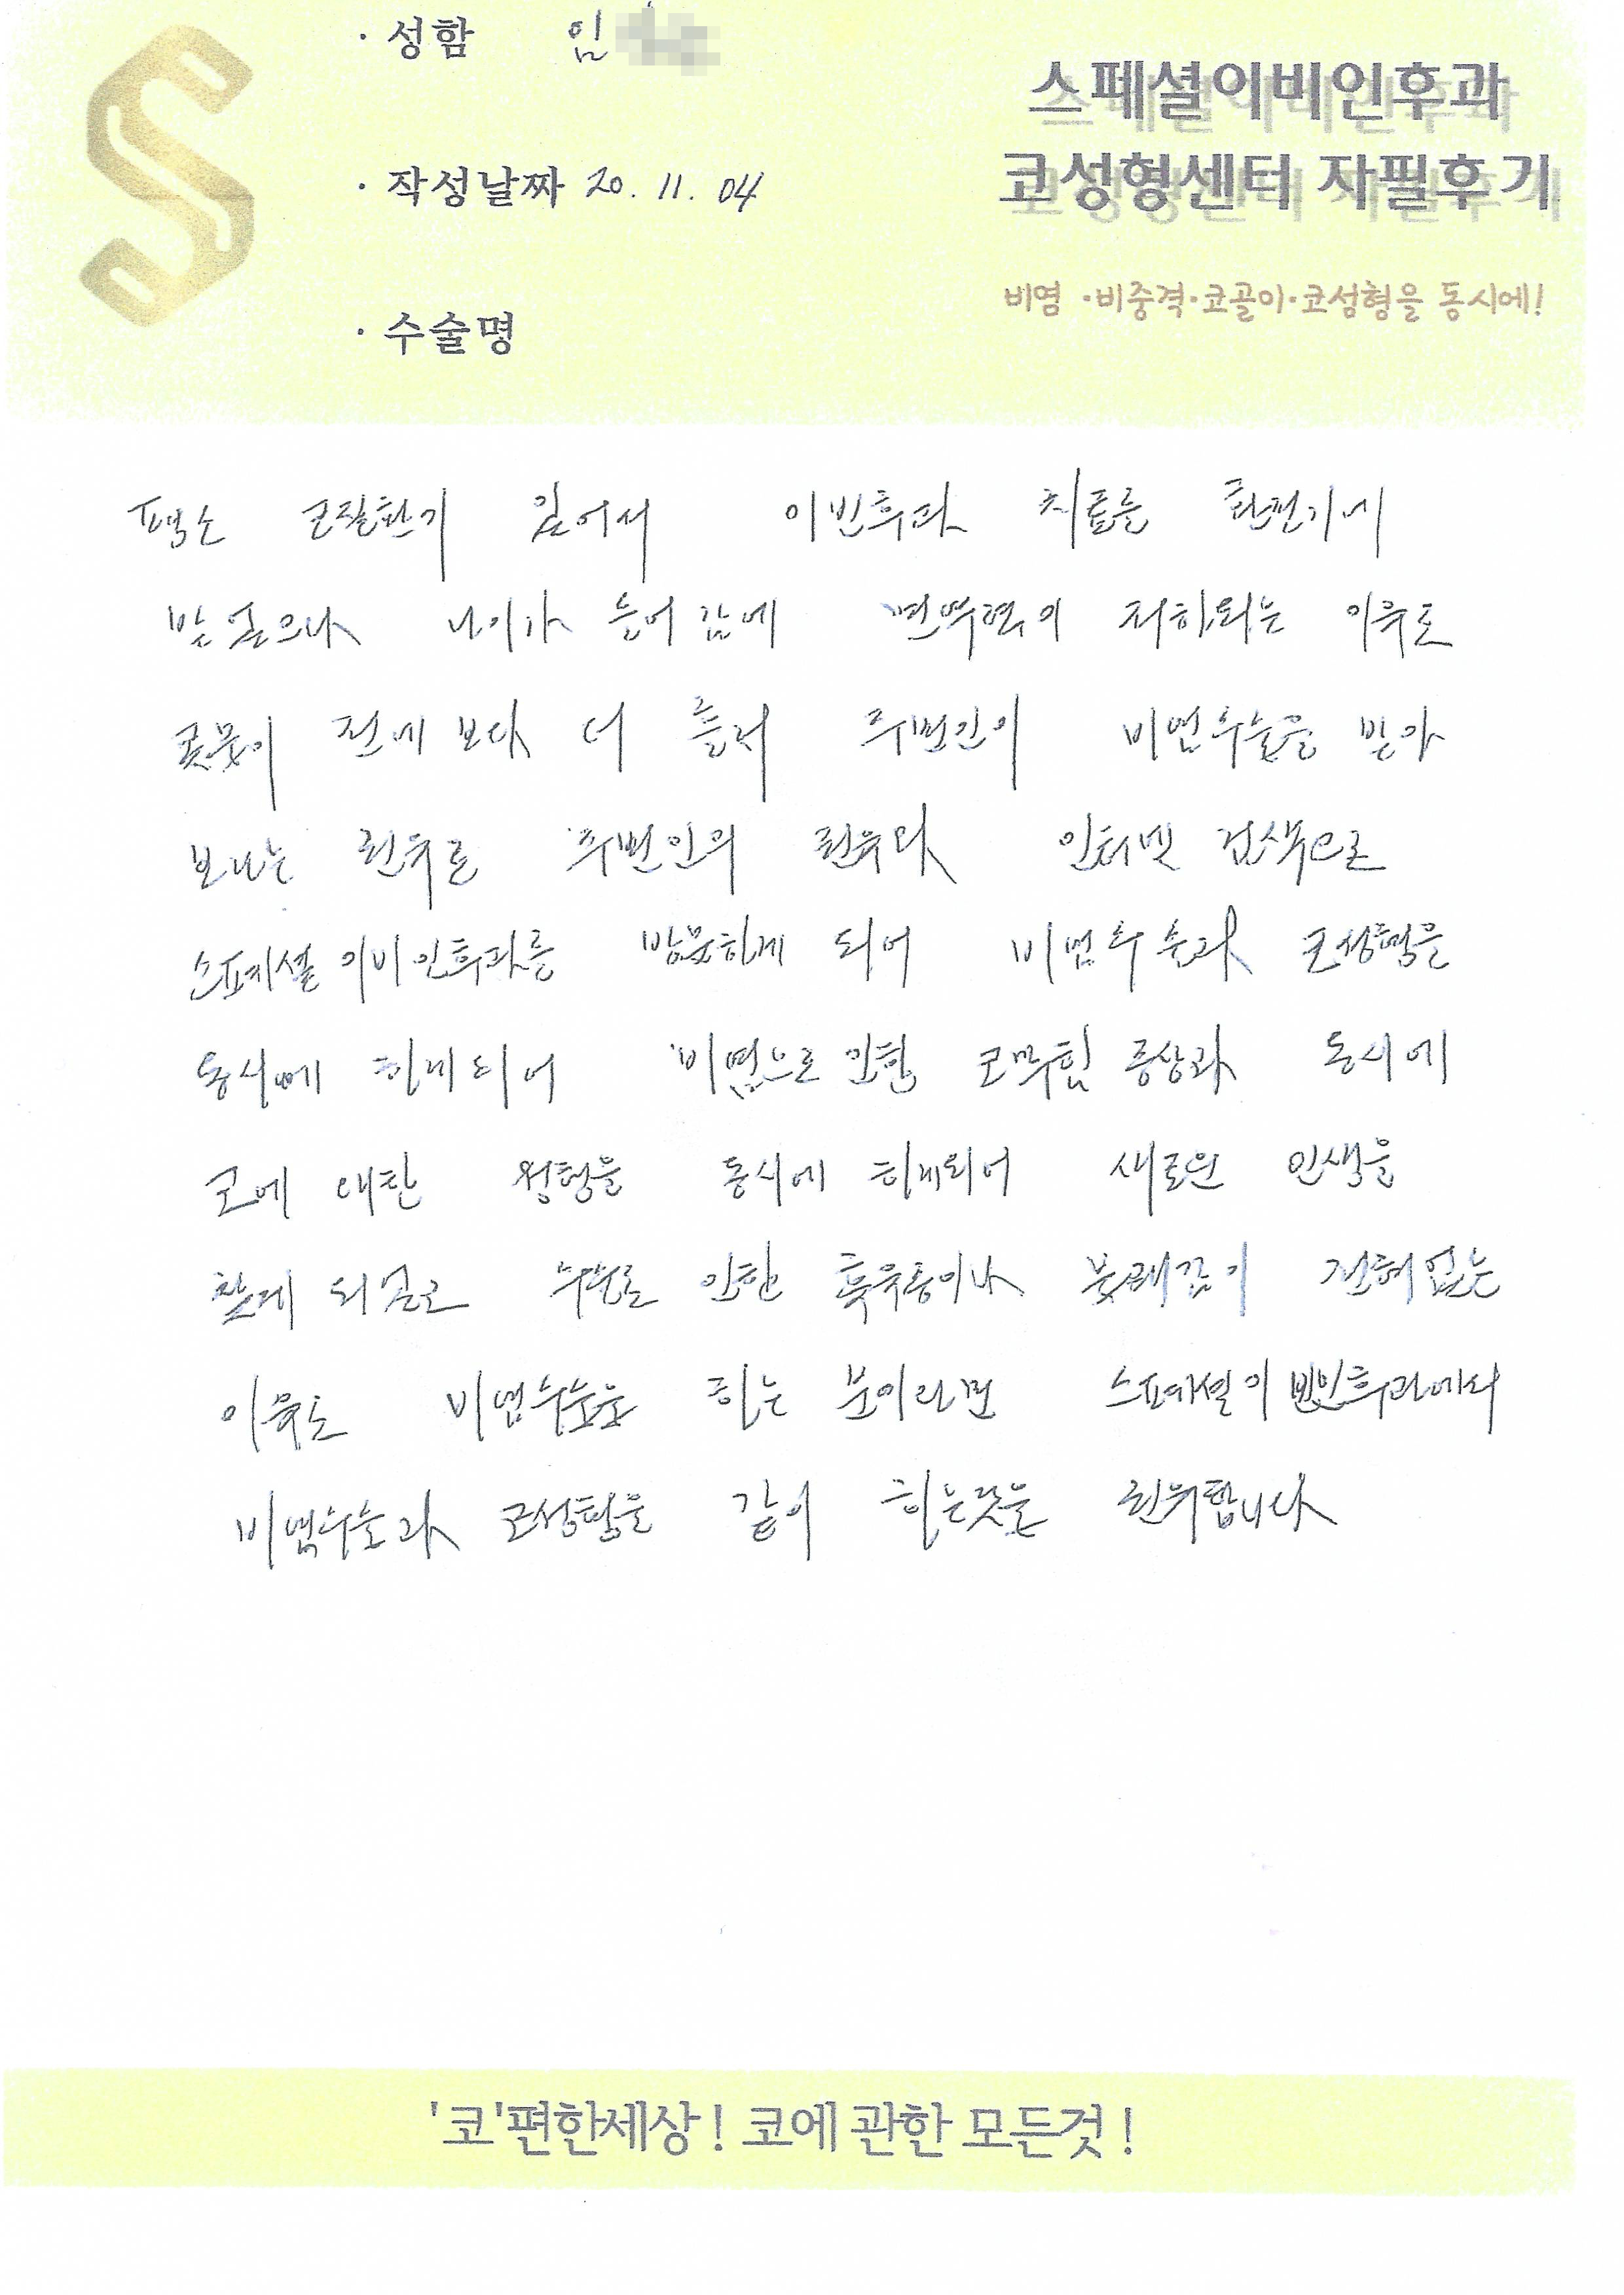 · 성함 임
스페셜이비인후과
코성형센터 자필후기
· 작성날짜 20. 11. 04
비염·비중격·코골이·코성형을 동시에!
· 수술명
평소 코질환이 있어서 이빈후과 치료를
받았으나 나이가 들어감에 면역력이 저하되는 이유로
콧물이 전에 보다 더 흘러 주변인이 비염수술을 받아
보라는 권유로 주변인의 권유와 인터넷 검색으로
스페셜 이비인후과를 방문하게 되어 비염수술과 코성형을
동시에 하게되어 비염으로 인한 코막힘 증상과 동시에
코에 대한 성형을 동시에 하게되어 새로운 인생을
찾게 되었고 수술로 인한 후유증이나 불쾌감이 전혀없는
이유로 비염수술을 하는 분이라면 스페셜이빈인후과에서
비염수술과 코성형을 같이 하는것을 권유합니다
'코'편한세상! 코에 관한 모든것!